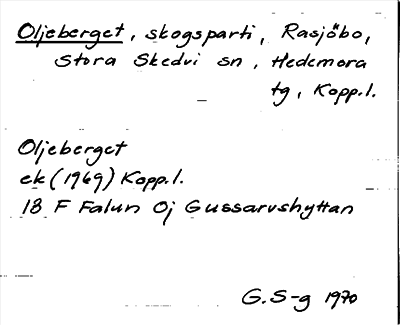 Oljeberget, skogsparti, Rasjöbo,
Stora Skedvi sn, Hedemora
tg, Kopp.l.
Oljeberget
ek (1969) Kopp.l.
13 F Falun 0j Gussarvshyttan
G.S-g 1970